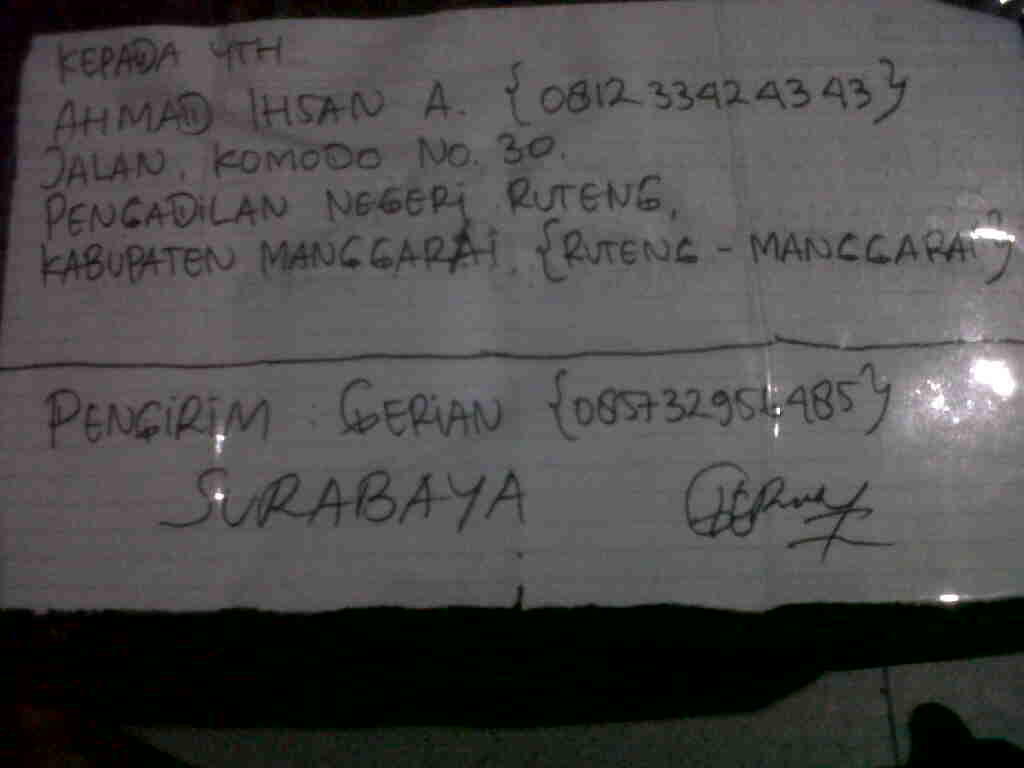 KEPADA YTH
AHMAD IHSAN A. {081233424343}
JALAN. KOMODO NO. 30.
PENGADILAN NEGERI RUTENG,
KABUPATEN MANGGARAI. {RUTENG - MANGGARAI}
PENGIRIM : GERIAN
SURABAYA